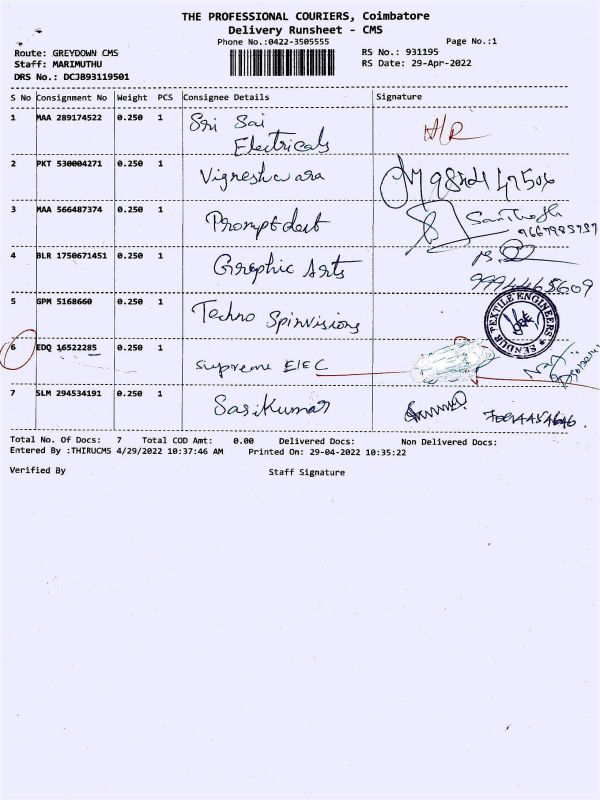 THE PROFESSIONAL COURIERS, Coimbatore
Delivery Runsheet - CMS
Phone No.:0422-3505555 Page No.:1
Route: GREYDOWN CMS RS No.: 931195
Staff: MARIMUTHU RS Date: 29-Apr-2022
DRS No.: DCJ893119501
S No Consignment No Weight PCS Consignee Details Signature
1 MAA 289174522 0.250 1 Sri Sai
Electricals
2 PKT 530004271 0.250 1 Vigneshwara
3 MAA 566487374 0.250 1 Prompt dest Santhosh
4 BLR 1750671451 0.250 1 Graphic Arts
9994465609
5 GPM 5168660 0.250 1 Techno Spinvisions SENDUR TEXTILE ENGINEERS
6 EDQ 16522285 0.250 1 Supreme ElEC
7 SLM 294534191 0.250 1 Sasikumar
Total No. Of Docs: 7 Total COD Amt: 0.00 Delivered Docs: Non Delivered Docs:
Entered By :THIRUCMS 4/29/2022 10:37:46 AM Printed On: 29-04-2022 10:35:22
Verified By Staff Signature